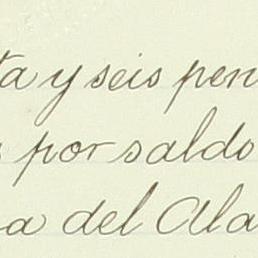 ta y seis pen
s por saldo
a del Ala